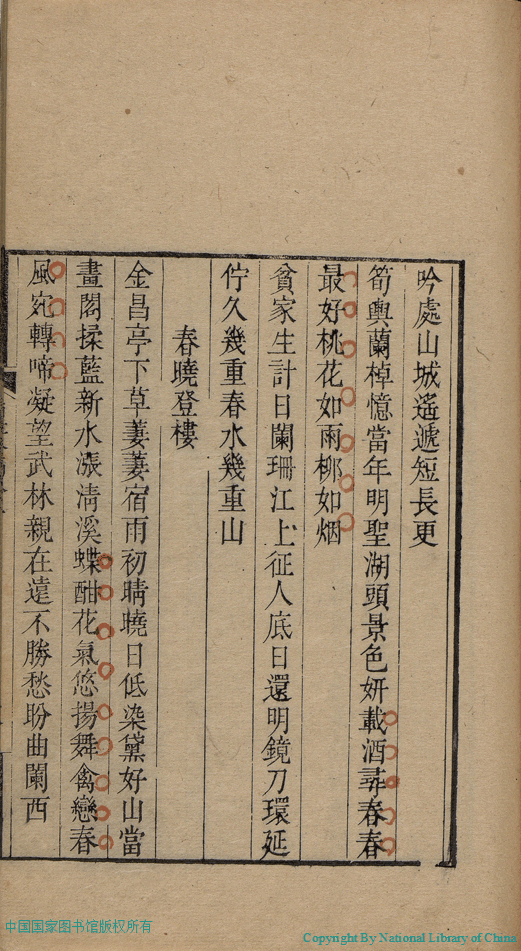 吟處山城遙遞短長更
筍輿蘭棹憶當年明聖湖頭景色妍載酒尋春春
最好桃花如雨柳如烟
貧家生計日闌珊江上征人底日還明鏡刀環延
佇久幾重春水幾重山
春曉登樓
金昌亭下草萋萋宿雨初晴曉日低染黛好山當
畫閣揉藍新水漲淸溪蝶酣花氣悠揚舞禽戀春
風宛轉啼凝望武林親在遠不勝愁盼曲闌西
中国国家图书馆版权所有
Copyright By National Library of China